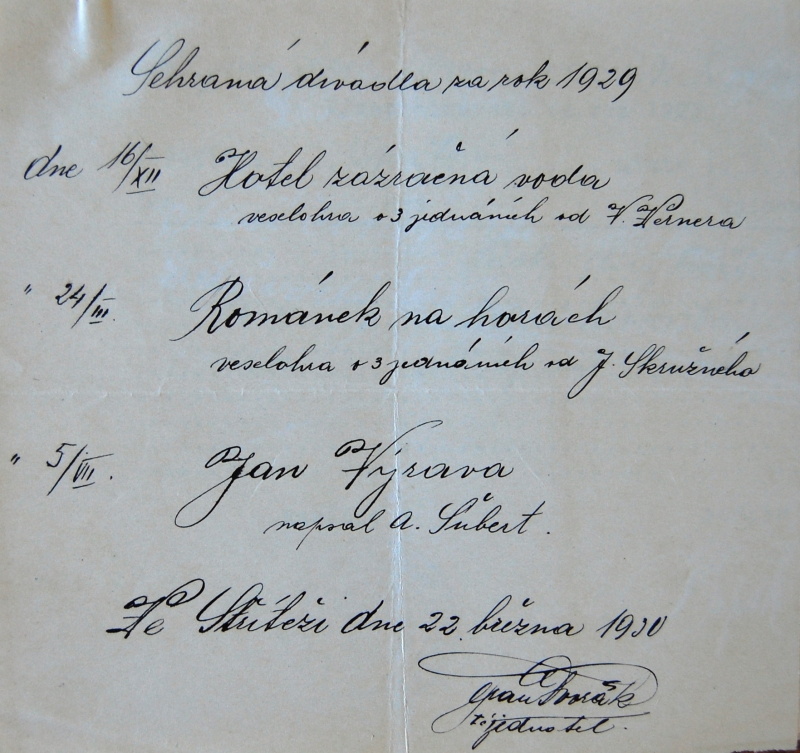 Sehraná divadla za rok 1929
dne 16/XII Hotel zázračná voda
veselohra o 3 jednáních od V. Vernera
" 24/III. Románek na horách
veselohra o 3 jednáních od J. Skružného
" 5/VII. Jan Výrava
napsal A. Šubert.
Ve Stříteži dne 22 března 1930
Dvořák
t.č. jednatel.